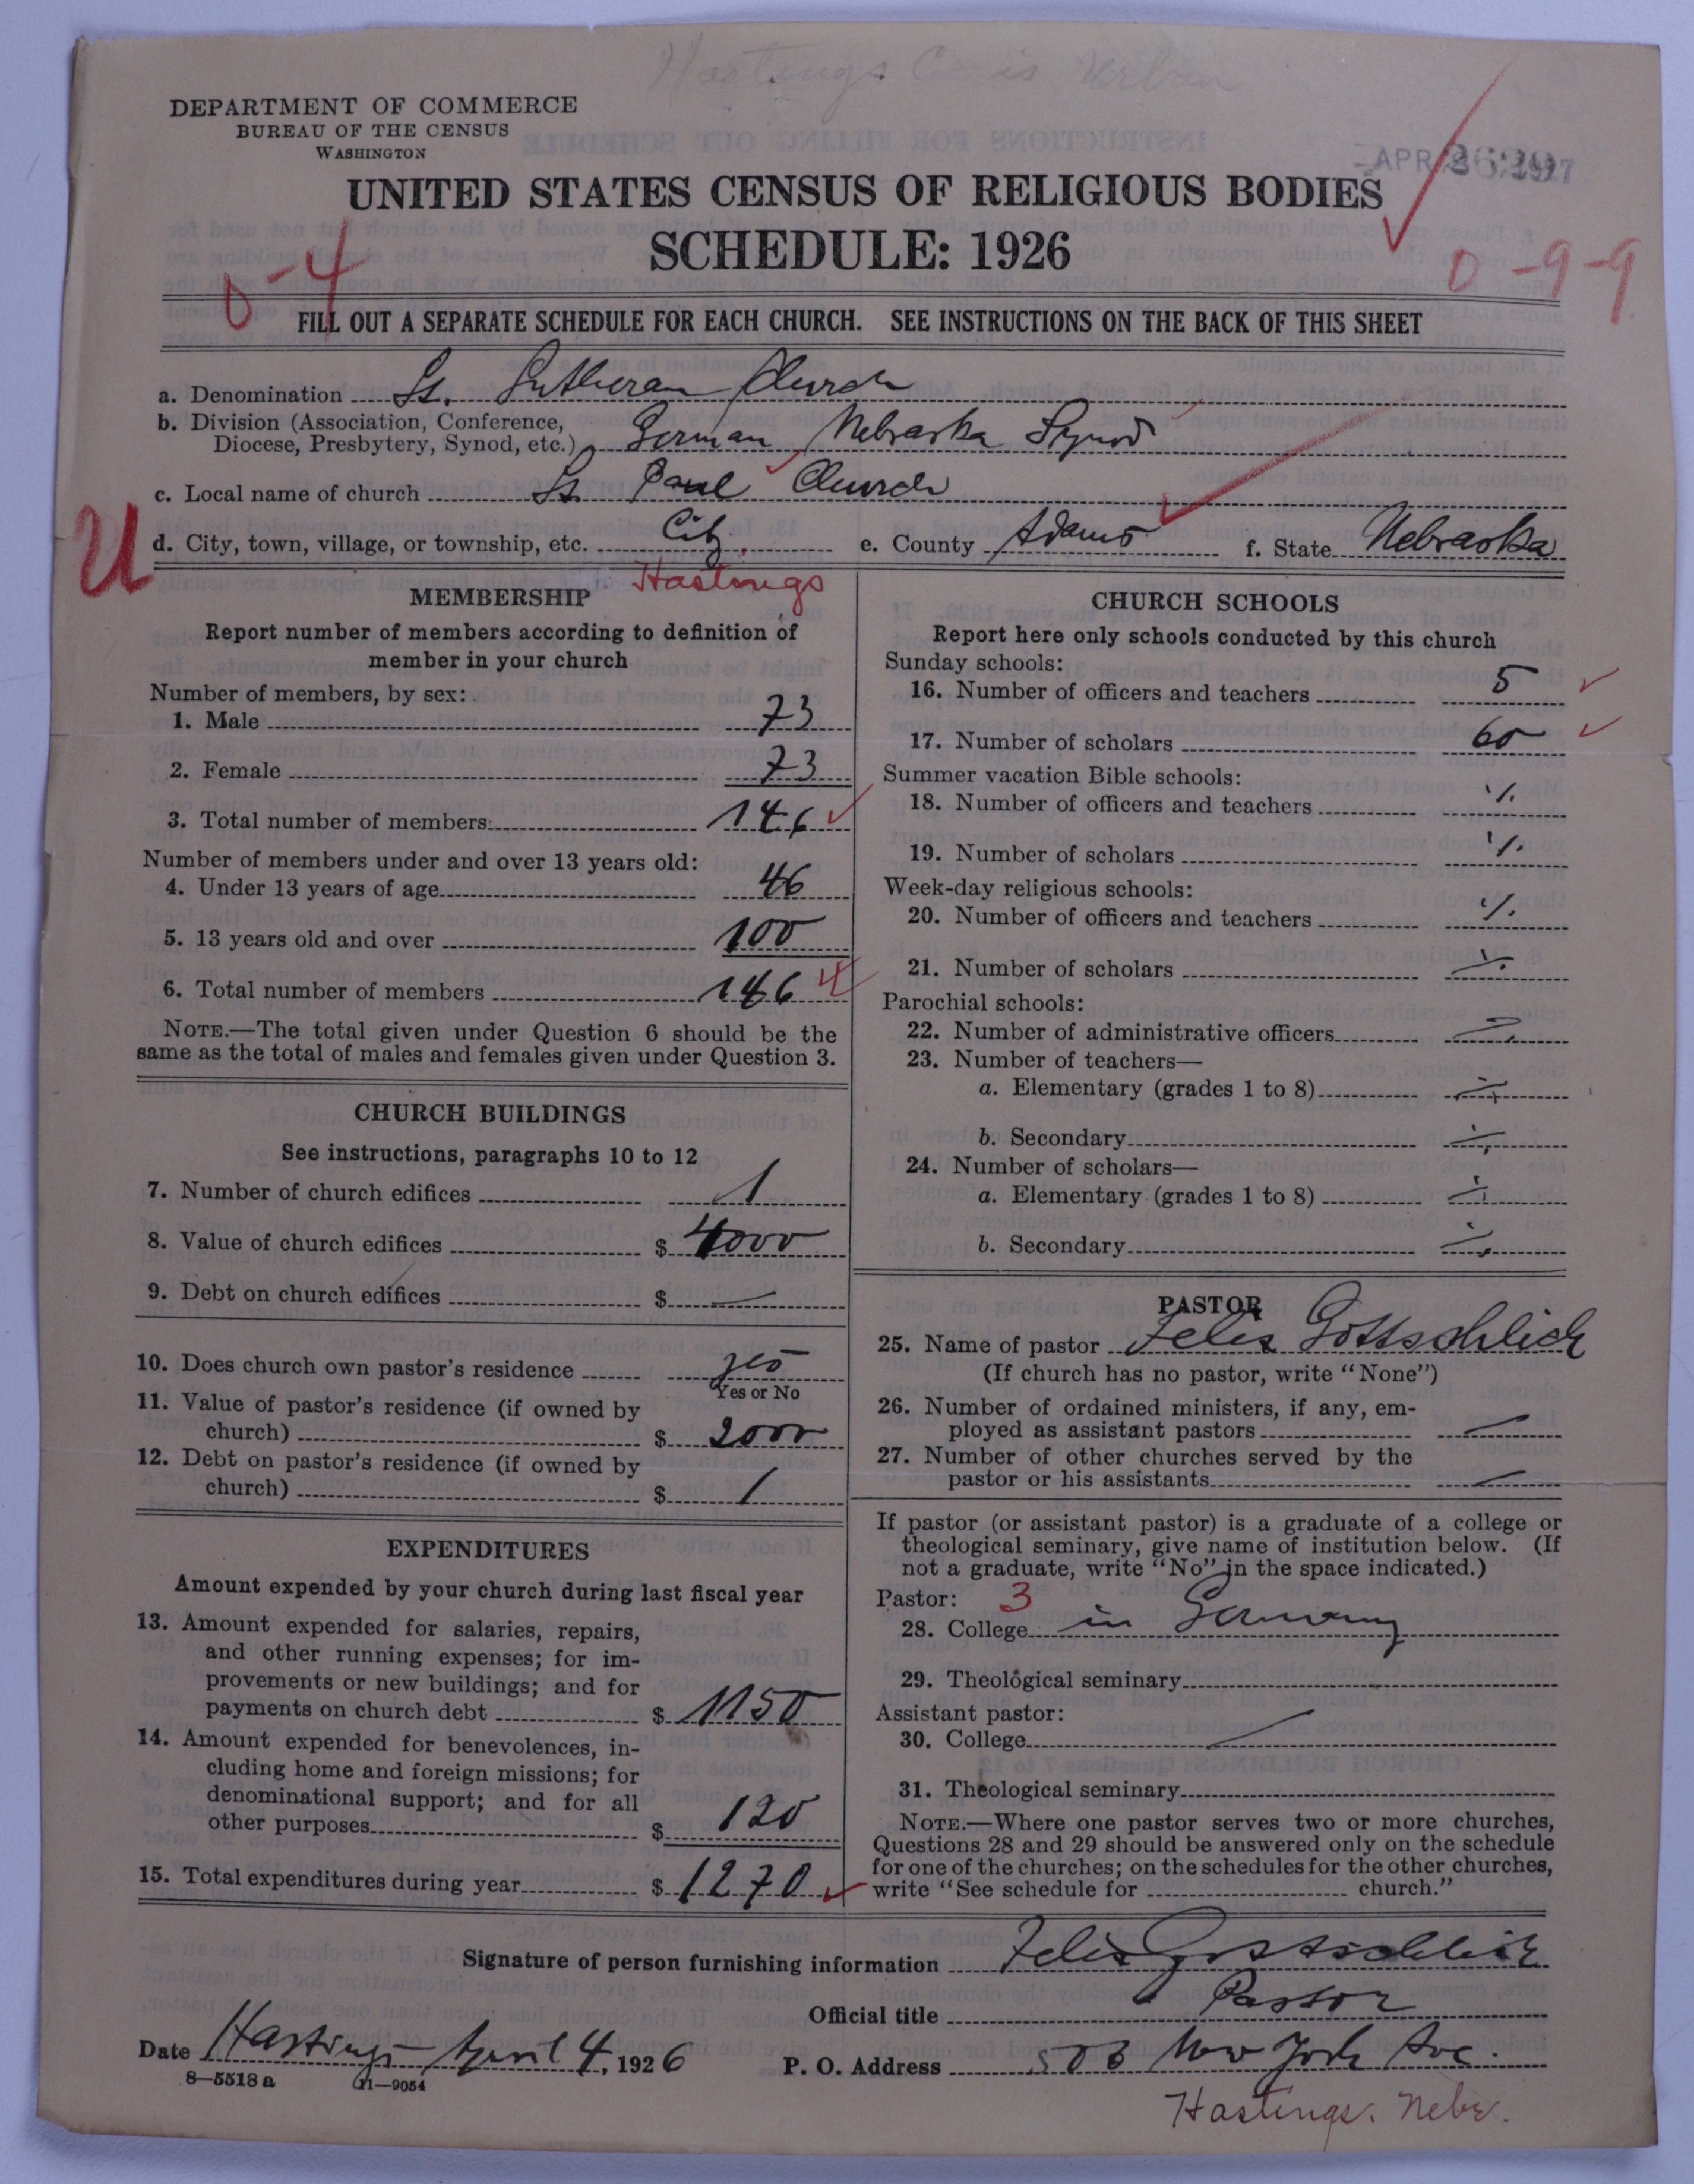 Hastings C is Urban
DEPARTMENT OF COMMERCE
BUREAU OF THE CENSUS
WASHINGTON
UNITED STATES CENSUS OF RELIGIOUS BODIES
SCHEDULE: 1926
0-4
0-9-9
FILL OUT A SEPARATE SCHEDULE FOR EACH CHURCH. SEE INSTRUCTIONS ON THE BACK OF THIS SHEET
a. Denomination Lutheran Church
b. Division (Association, Conference,
Diocese, Presbytery, Synod, etc.) German Nebraska Synod
c. Local name of church St. Paul Church
U
d. City, town, village, or township, etc. City. e. County Adams f. State Nebraska
Hastings
MEMBERSHIP
Report number of members according to definition of
member in your church
Number of members, by sex:
1. Male 73
2. Female 73
3. Total number of members 146
Number of members under and over 13 years old:
4. Under 13 years of age 46
5. 13 years old and over 100
6. Total number of members 146
NOTE.—The total given under Question 6 should be the
same as the total of males and females given under Question 3.
CHURCH BUILDINGS
See instructions, paragraphs 10 to 12
7. Number of church edifices 1
8. Value of church edifices $ 4000
9. Debt on church edifices $ —
10. Does church own pastor's residence yes
Yes or No
11. Value of pastor's residence (if owned by
church) $ 2000
12. Debt on pastor's residence (if owned by
church) $ /
EXPENDITURES
Amount expended by your church during last fiscal year
13. Amount expended for salaries, repairs,
and other running expenses; for im-
provements or new buildings; and for
payments on church debt $ 1150
14. Amount expended for benevolences, in-
cluding home and foreign missions; for
denominational support; and for all
other purposes $ 120
15. Total expenditures during year $ 1270
CHURCH SCHOOLS
Report here only schools conducted by this church
Sunday schools:
16. Number of officers and teachers 5
17. Number of scholars 60
Summer vacation Bible schools:
18. Number of officers and teachers ·/.
19. Number of scholars ·/.
Week-day religious schools:
20. Number of officers and teachers ·/.
21. Number of scholars ·/.
Parochial schools:
22. Number of administrative officers ·/.
23. Number of teachers—
a. Elementary (grades 1 to 8) ·/.
b. Secondary ·/.
24. Number of scholars—
a. Elementary (grades 1 to 8) ·/.
b. Secondary ·/.
PASTOR
25. Name of pastor Felix Gottschlich
(If church has no pastor, write "None")
26. Number of ordained ministers, if any, em-
ployed as assistant pastors —
27. Number of other churches served by the
pastor or his assistants —
If pastor (or assistant pastor) is a graduate of a college or
theological seminary, give name of institution below. (If
not a graduate, write "No" in the space indicated.)
Pastor: 3
28. College in Germany
29. Theological seminary
Assistant pastor:
30. College —
31. Theological seminary
NOTE.—Where one pastor serves two or more churches,
Questions 28 and 29 should be answered only on the schedule
for one of the churches; on the schedules for the other churches,
write "See schedule for church."
Signature of person furnishing information Felix Gottschlich
Official title Pastor
Date Hastings April 4, 1926 P. O. Address 503 New York Ave.
8—5518 a 11—9054
Hastings, Nebr.